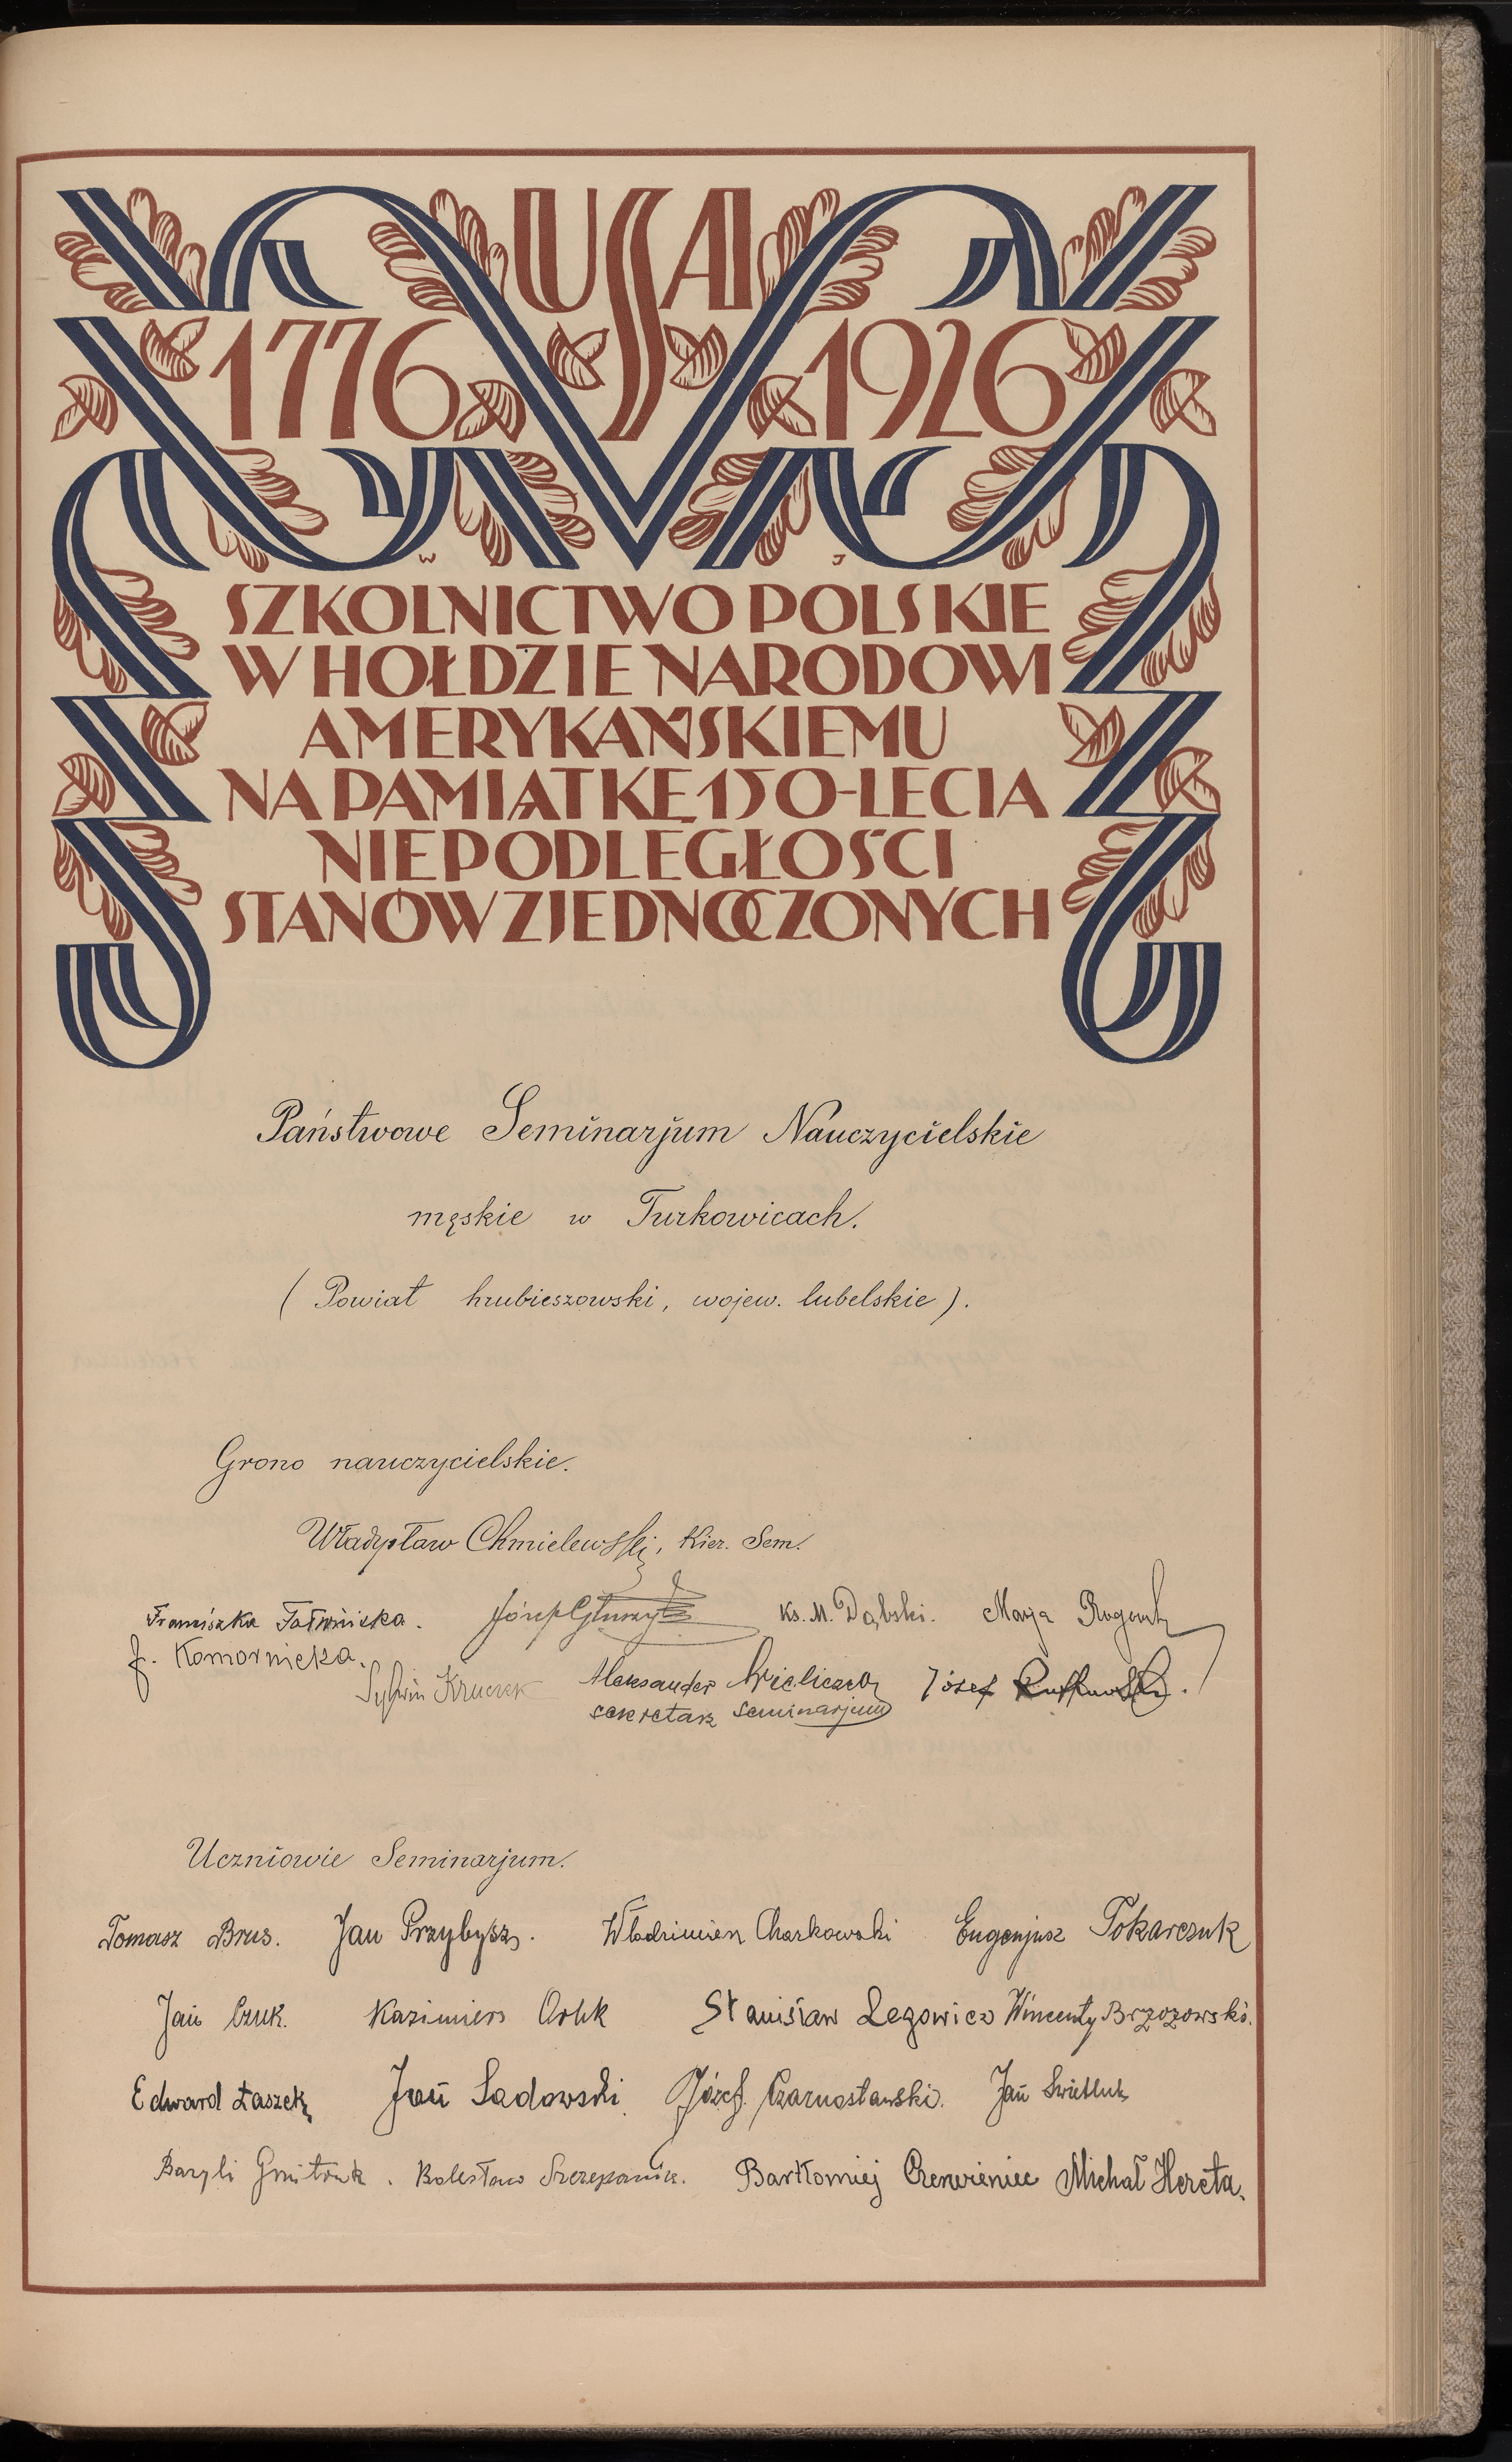 USA
1776 1926
W J
SZKOLNICTWO POLSKIE
W HOŁDZIE NARODOWI
AMERYKAŃSKIEMU
NA PAMIĄTKĘ 150-LECIA
NIEPODLEGŁOŚCI
STANÓW ZJEDNOCZONYCH
Państwowe Seminarjum Nauczycielskie
męskie w Turkowicach.
(Powiat hrubieszowski, wojew. lubelskie).
Grono nauczycielskie.
Władysław Chmielewski, Kier. Sem.
Franciszka Józef Ks. M. Dąbski. Marja
J. Komornicka.
Sylwin Kruczek Aleksander Wieliczko Józef
sekretarz seminarjum
Uczniowie Seminarjum.
Tomasz Brus. Jan Przybysz. Włodzimierz Charkowski Eugenjusz Tokarczuk
Jan Czuk. Kazimierz Stanisław Legowicz Wincenty Brzozowski.
Edward Łaszek Jan Sadowski. Józef Czarnostawski. Jan
Bazyli Gmitruk. Bolesław Szczepanik. Bartłomiej Czerwieniec Michał Hereta.